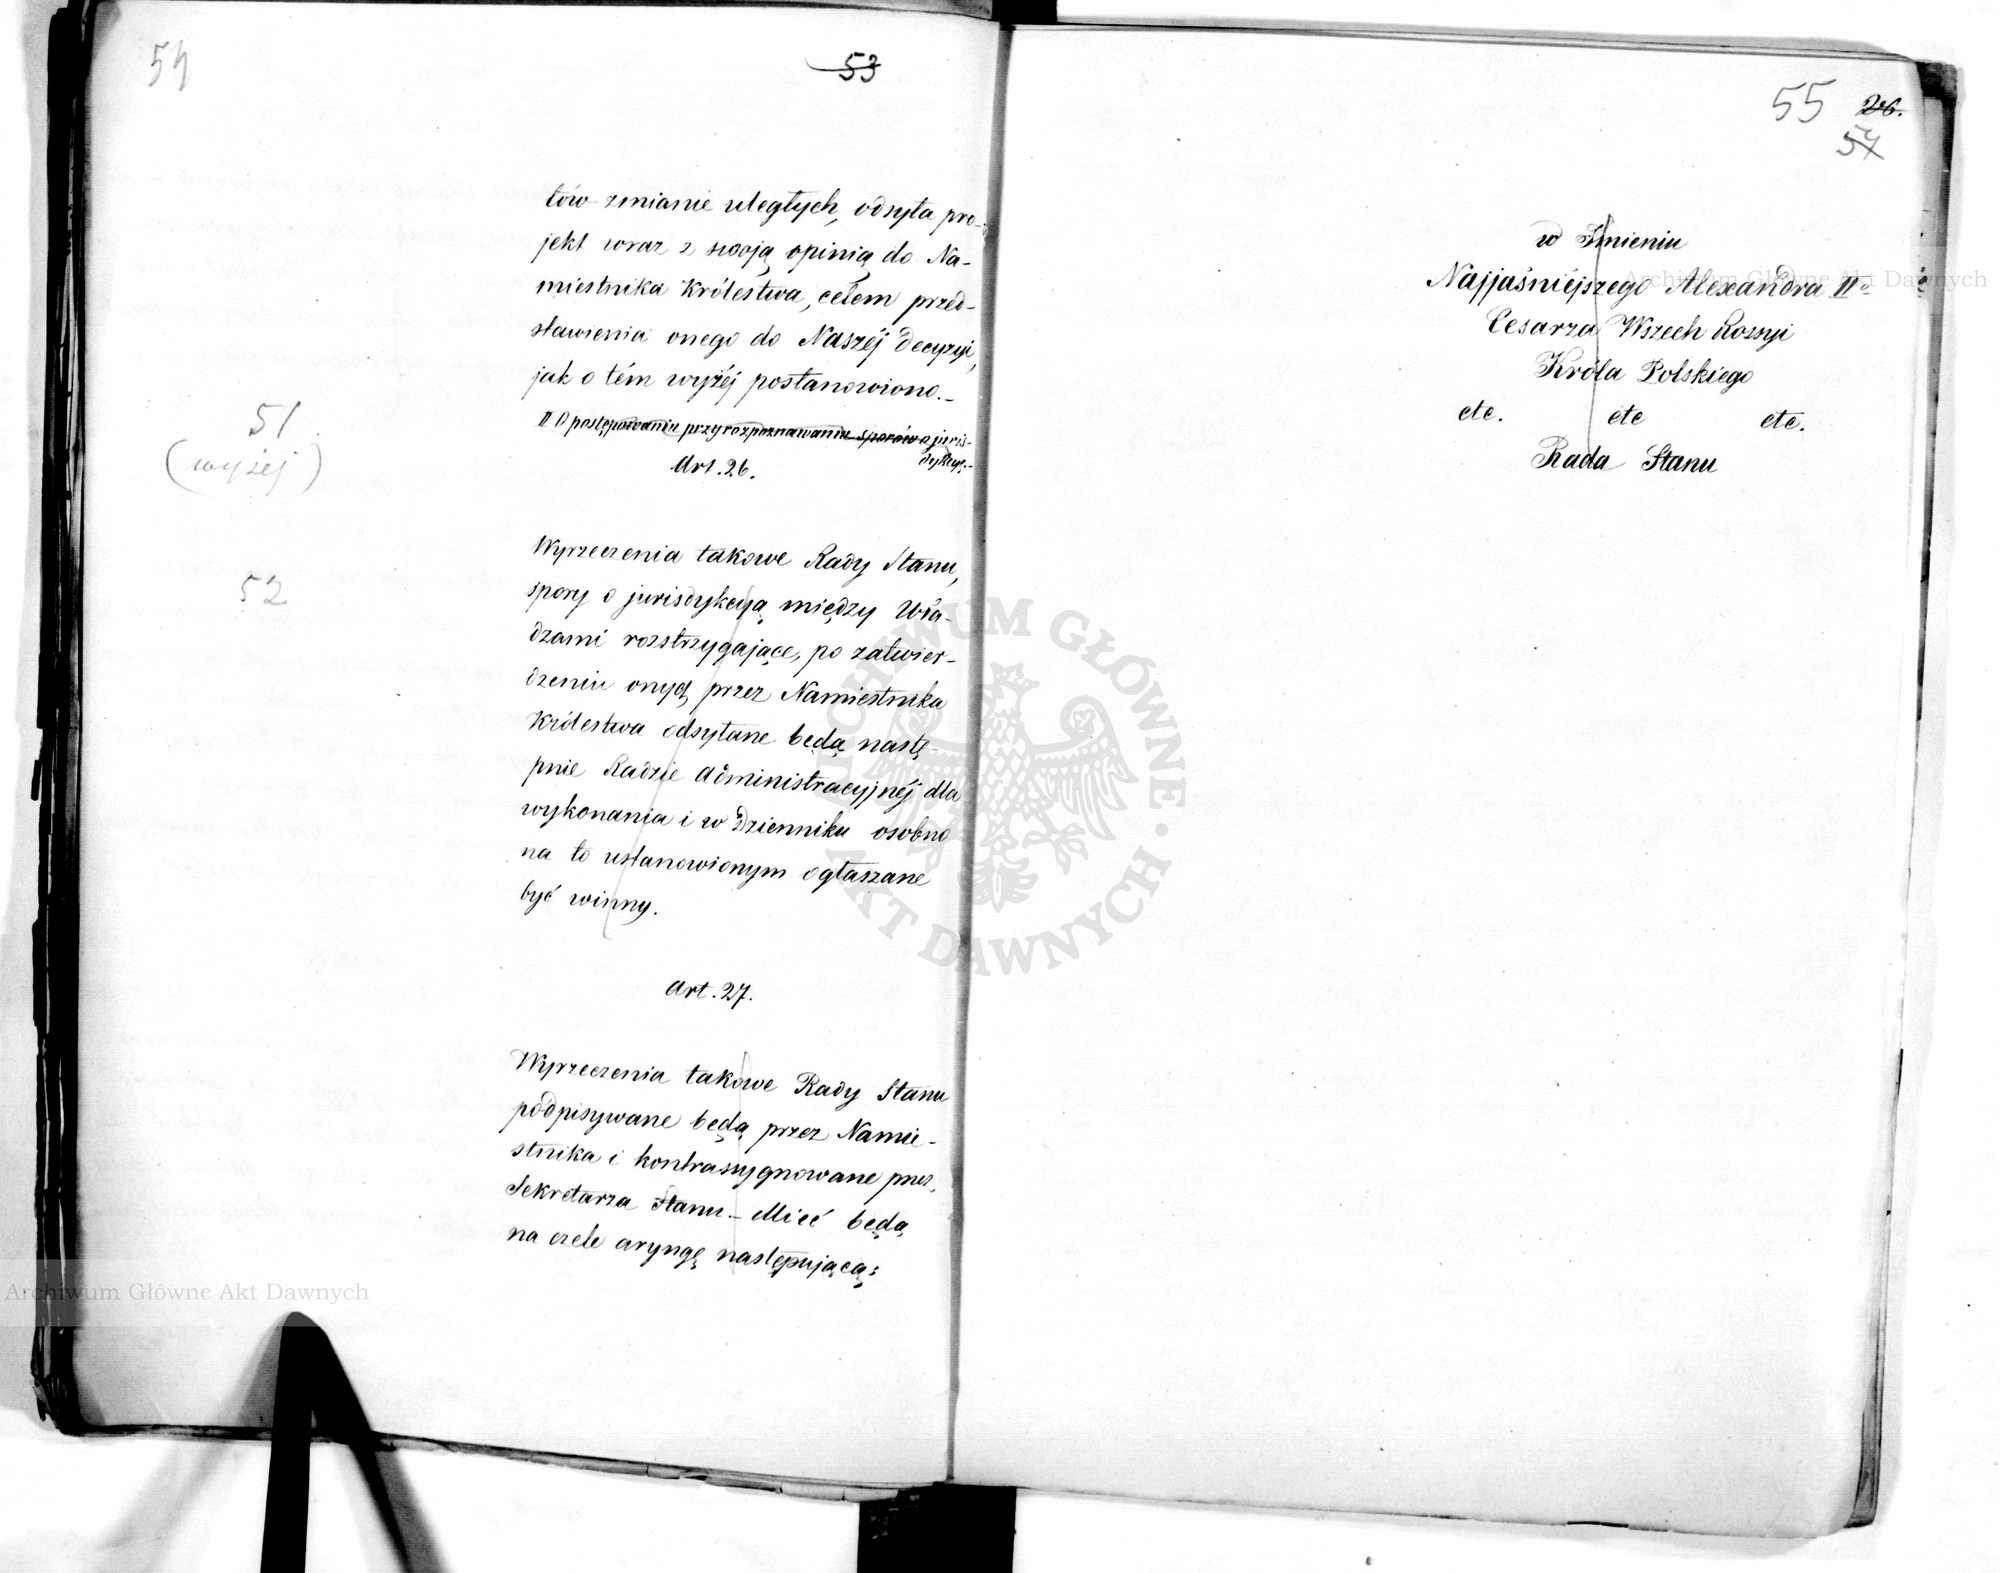 54
53
tów zmianie uległych, odsyła pro-
jekt wraz z swoją opinią do Na-
miestnika Królestwa, celem przed-
stawienia onego do Naszéj decyzyi,
jak o tém wyżéj postanowiono.-
II O postępowaniu przy rozpoznawaniu sporów o juris-
dykcye.-
Art. 26.
51
(wyżej)
Wyrzeczenia takowe Rady Stanu,
spory o jurisdykcyą między Wła-
dzami rozstrzygające, po zatwier-
dzeniu onych przez Namiestnika
Królestwa odsyłane będą nastę-
pnie Radzie Administracyjnéj dla
wykonania i w Dzienniku osobno
na to ustanowionym ogłaszane
być winny.
52
Art. 27.
Wyrzeczenia takowe Rady Stanu
podpisywane będą przez Namie-
stnika i kontrasygnowane przez
Sekretarza Stanu.- Mieć będą
na czele aryngę następującą:
55 26.
54
w Imieniu
Najjaśniéjszego Alexandra IIo
Cesarza Wszech Rossyi
Króla Polskiego
etc. etc etc.
Rada Stanu
Archiwum Główne Akt Dawnych
ARCHIWUM GŁÓWNE · AKT DAWNYCH ·
Archiwum Główne Akt Dawnych